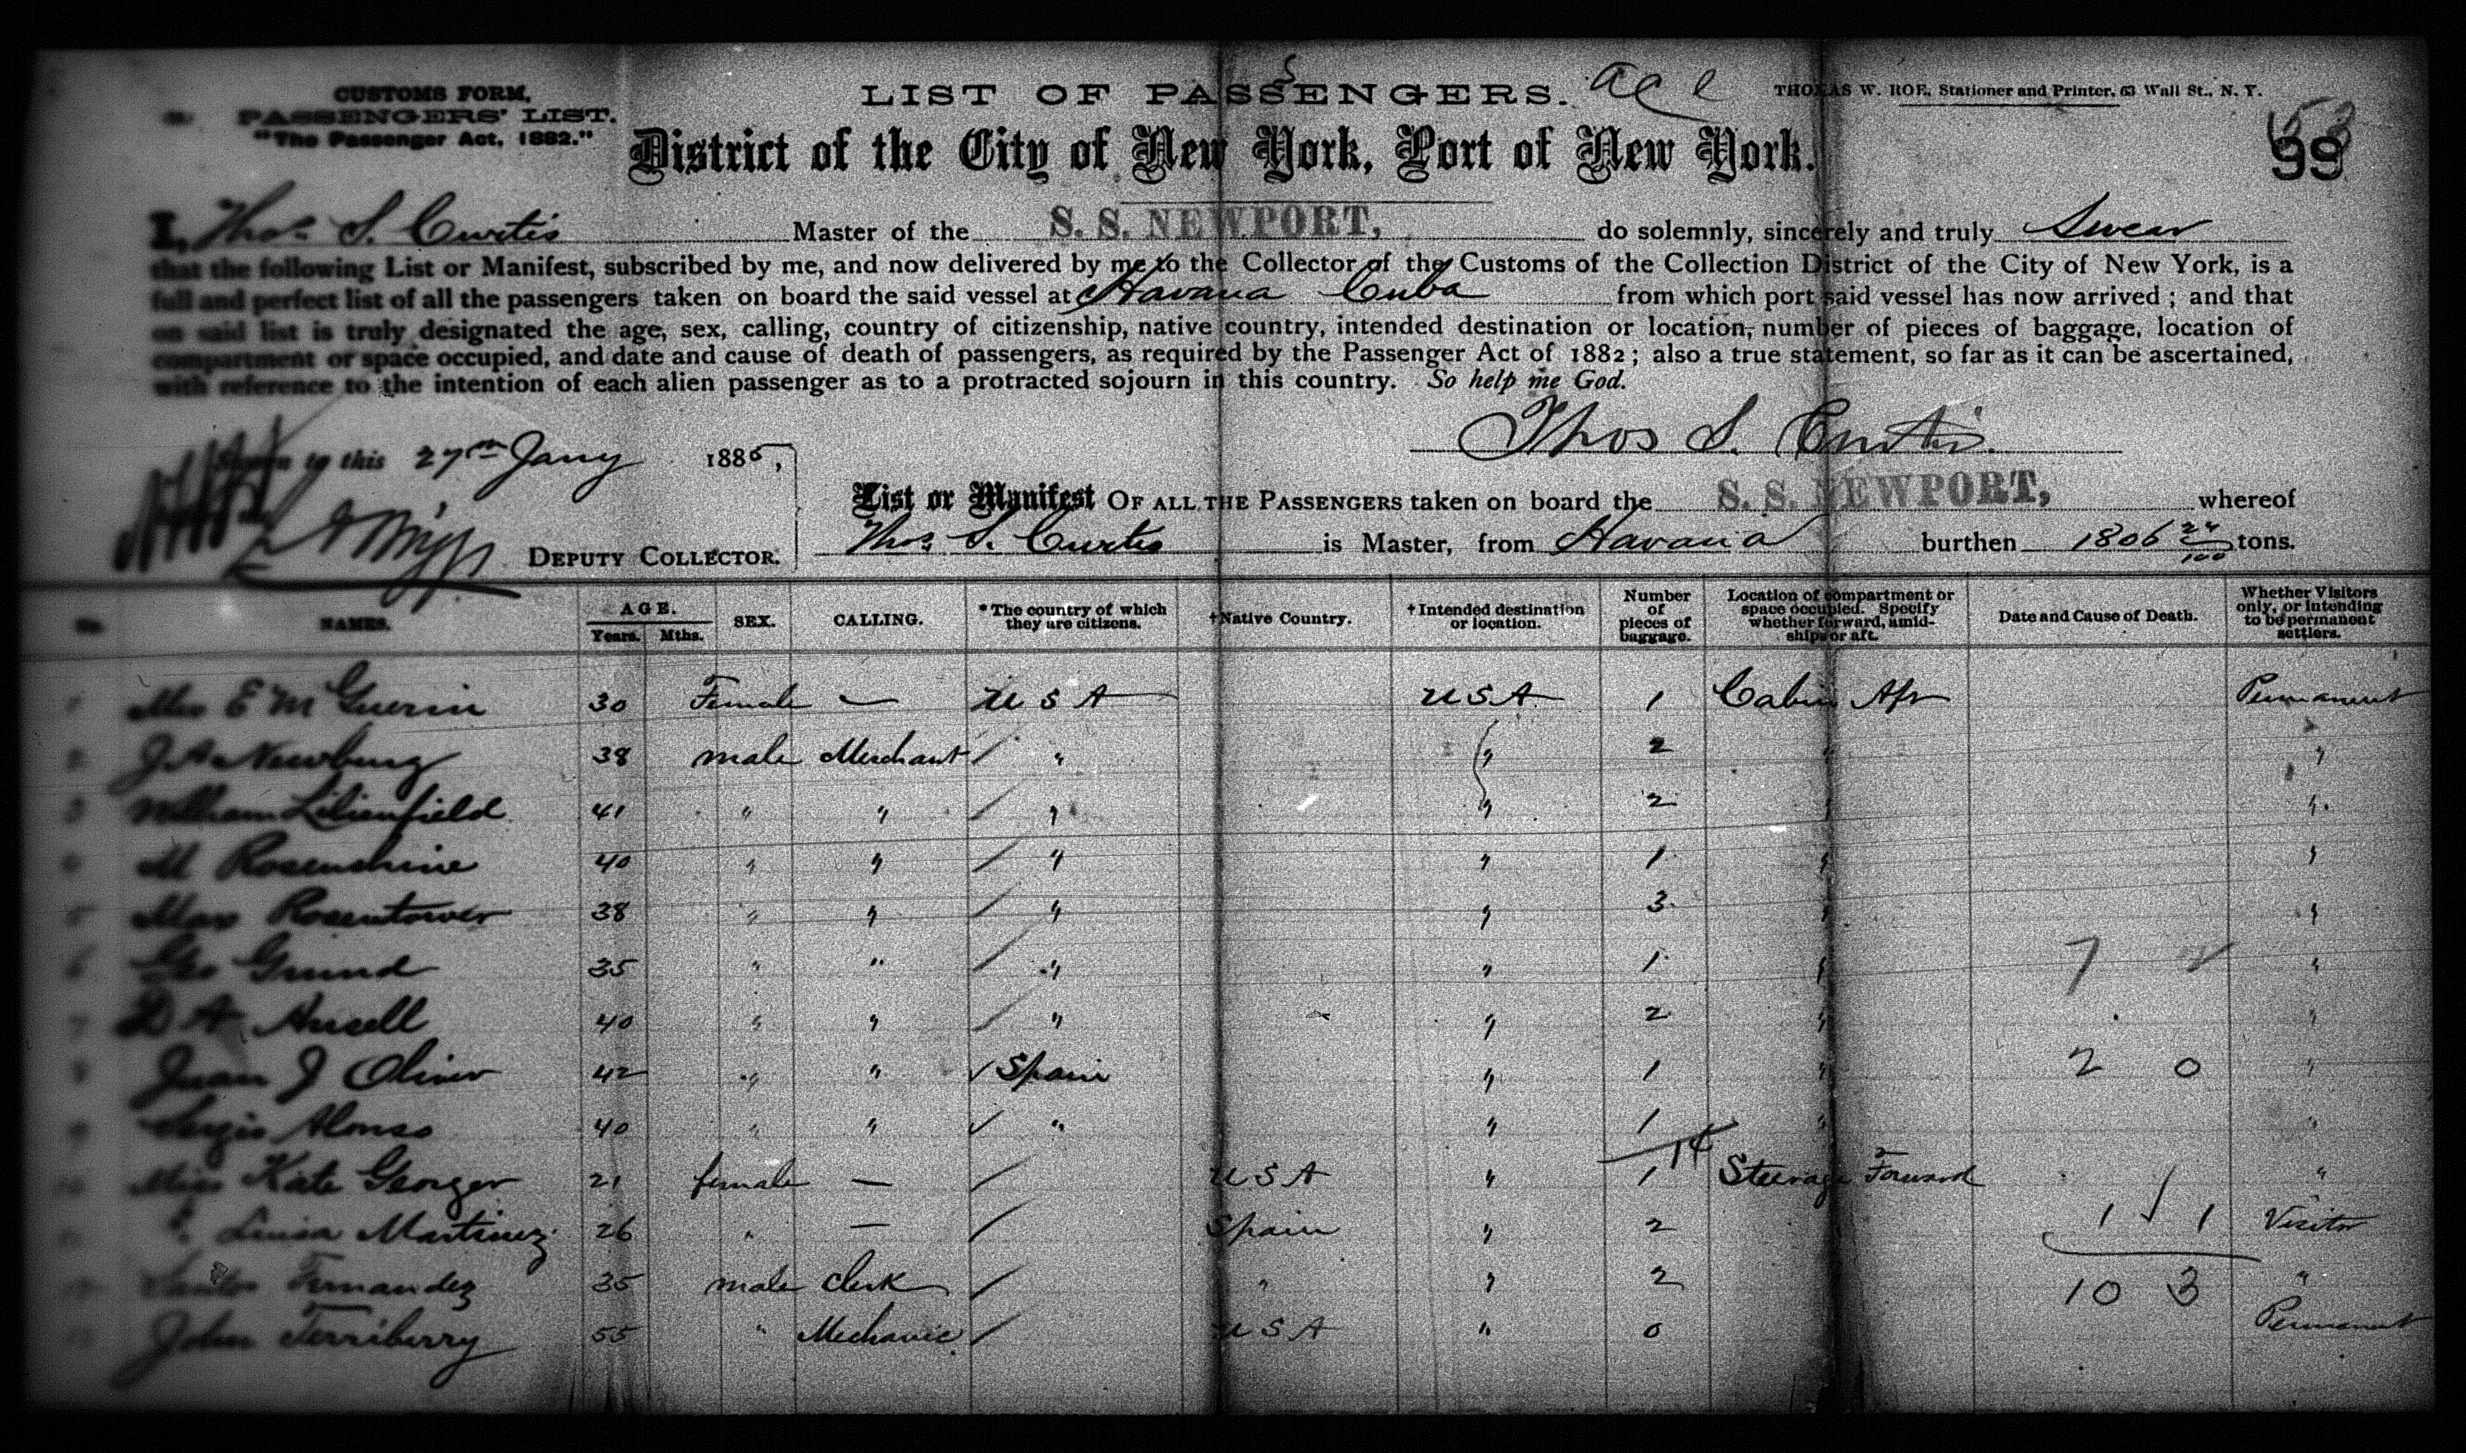 CUSTOMS FORM,
PASSENGERS' LIST.
"The Passenger Act, 1882."
LIST OF PASSENGERS.
THOMAS W. ROE, Stationer and Printer, 63 Wall St., N. Y.
District of the City of New York, Port of New York.
99
I, Thos. S. Curtis Master of the S. S. NEWPORT, do solemnly, sincerely and truly Swear
that the following List or Manifest, subscribed by me, and now delivered by me to the Collector of the Customs of the Collection District of the City of New York, is a
full and perfect list of all the passengers taken on board the said vessel at Havana Cuba from which port said vessel has now arrived; and that
on said list is truly designated the age, sex, calling, country of citizenship, native country, intended destination or location, number of pieces of baggage, location of
compartment or space occupied, and date and cause of death of passengers, as required by the Passenger Act of 1882; also a true statement, so far as it can be ascertained,
with reference to the intention of each alien passenger as to a protracted sojourn in this country. So help me God.
Thos S. Curtis.
Sworn to this 27th Jany 1886,
List or Manifest OF ALL THE PASSENGERS taken on board the S. S. NEWPORT, whereof
DEPUTY COLLECTOR. Thos. S. Curtis is Master, from Havana burthen 1806 24/100 tons.
No. NAMES. AGE. Years. Mths. SEX. CALLING. *The country of which they are citizens. †Native Country. †Intended destination or location. Number of pieces of baggage. Location of compartment or space occupied. Specify whether forward, amidships or aft. Date and Cause of Death. Whether Visitors only, or intending to be permanent settlers.
1 Mrs E M Guerin 30 Female — U S A U S A 1 Cabin Aft Permanent
2 J A Newburg 38 male Merchant / " " 2 " "
3 William Lilienfield 41 " " / " " 2 " "
4 M Rosenshine 40 " " / " " 1 " "
5 Max Rosentower 38 " " / " " 3 " "
6 Geo Grund 35 " " / " " 1 " 7 "
7 D A Ansell 40 " " / " " 2 " "
8 Juan J Oliver 42 " " ✓ Spain " 1 " 2 0 "
9 Sergio Alonso 40 " " ✓ " " 1 " "
14
10 Miss Kate Georger 21 female — / U S A " 1 Steerage Forward "
11 " Luisa Martinez 26 " — / Spain " 2 1 1 Visitor
12 Santos Fernandez 35 male Clerk / " " 2 10 3 "
13 John Terriberry 55 " Mechanic / U S A " 0 Permanent